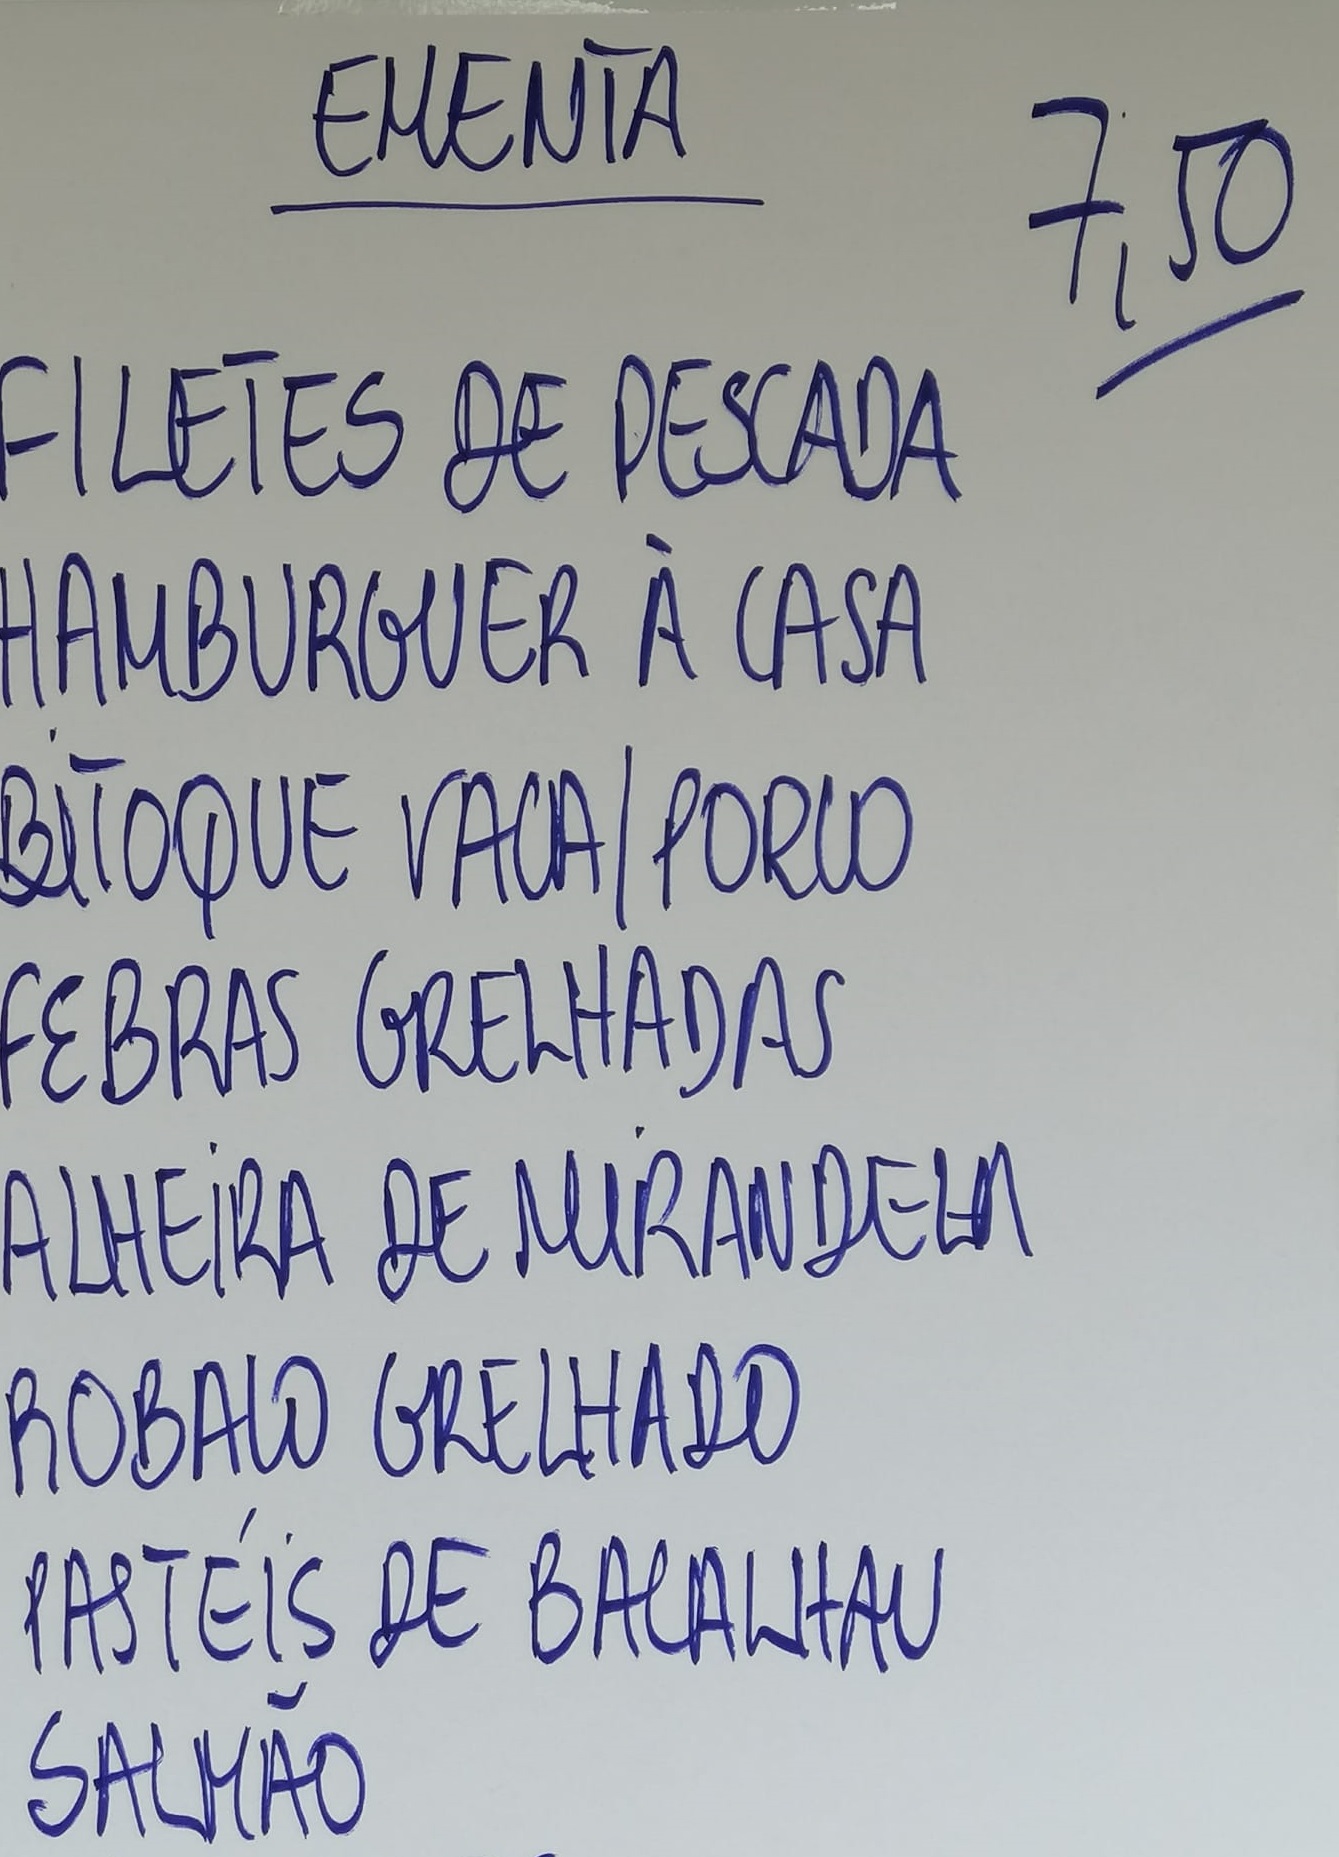 EMENTA
7,50
FILETES DE PESCADA
HAMBURGUER À CASA
BITOQUE VACA/PORCO
FEBRAS GRELHADAS
ALHEIRA DE MIRANDELA
ROBALO GRELHADO
PASTÉIS DE BACALHAU
SALMÃO